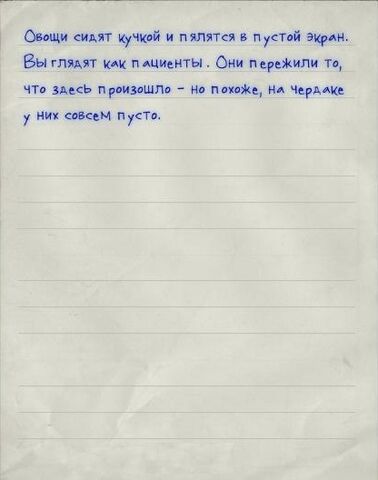 Овощи сидят кучкой и пялятся в пустой экран.
Вы глядят как пациенты. Они пережили то,
что здесь произошло - но похоже, на чердаке
у них совсем пусто.